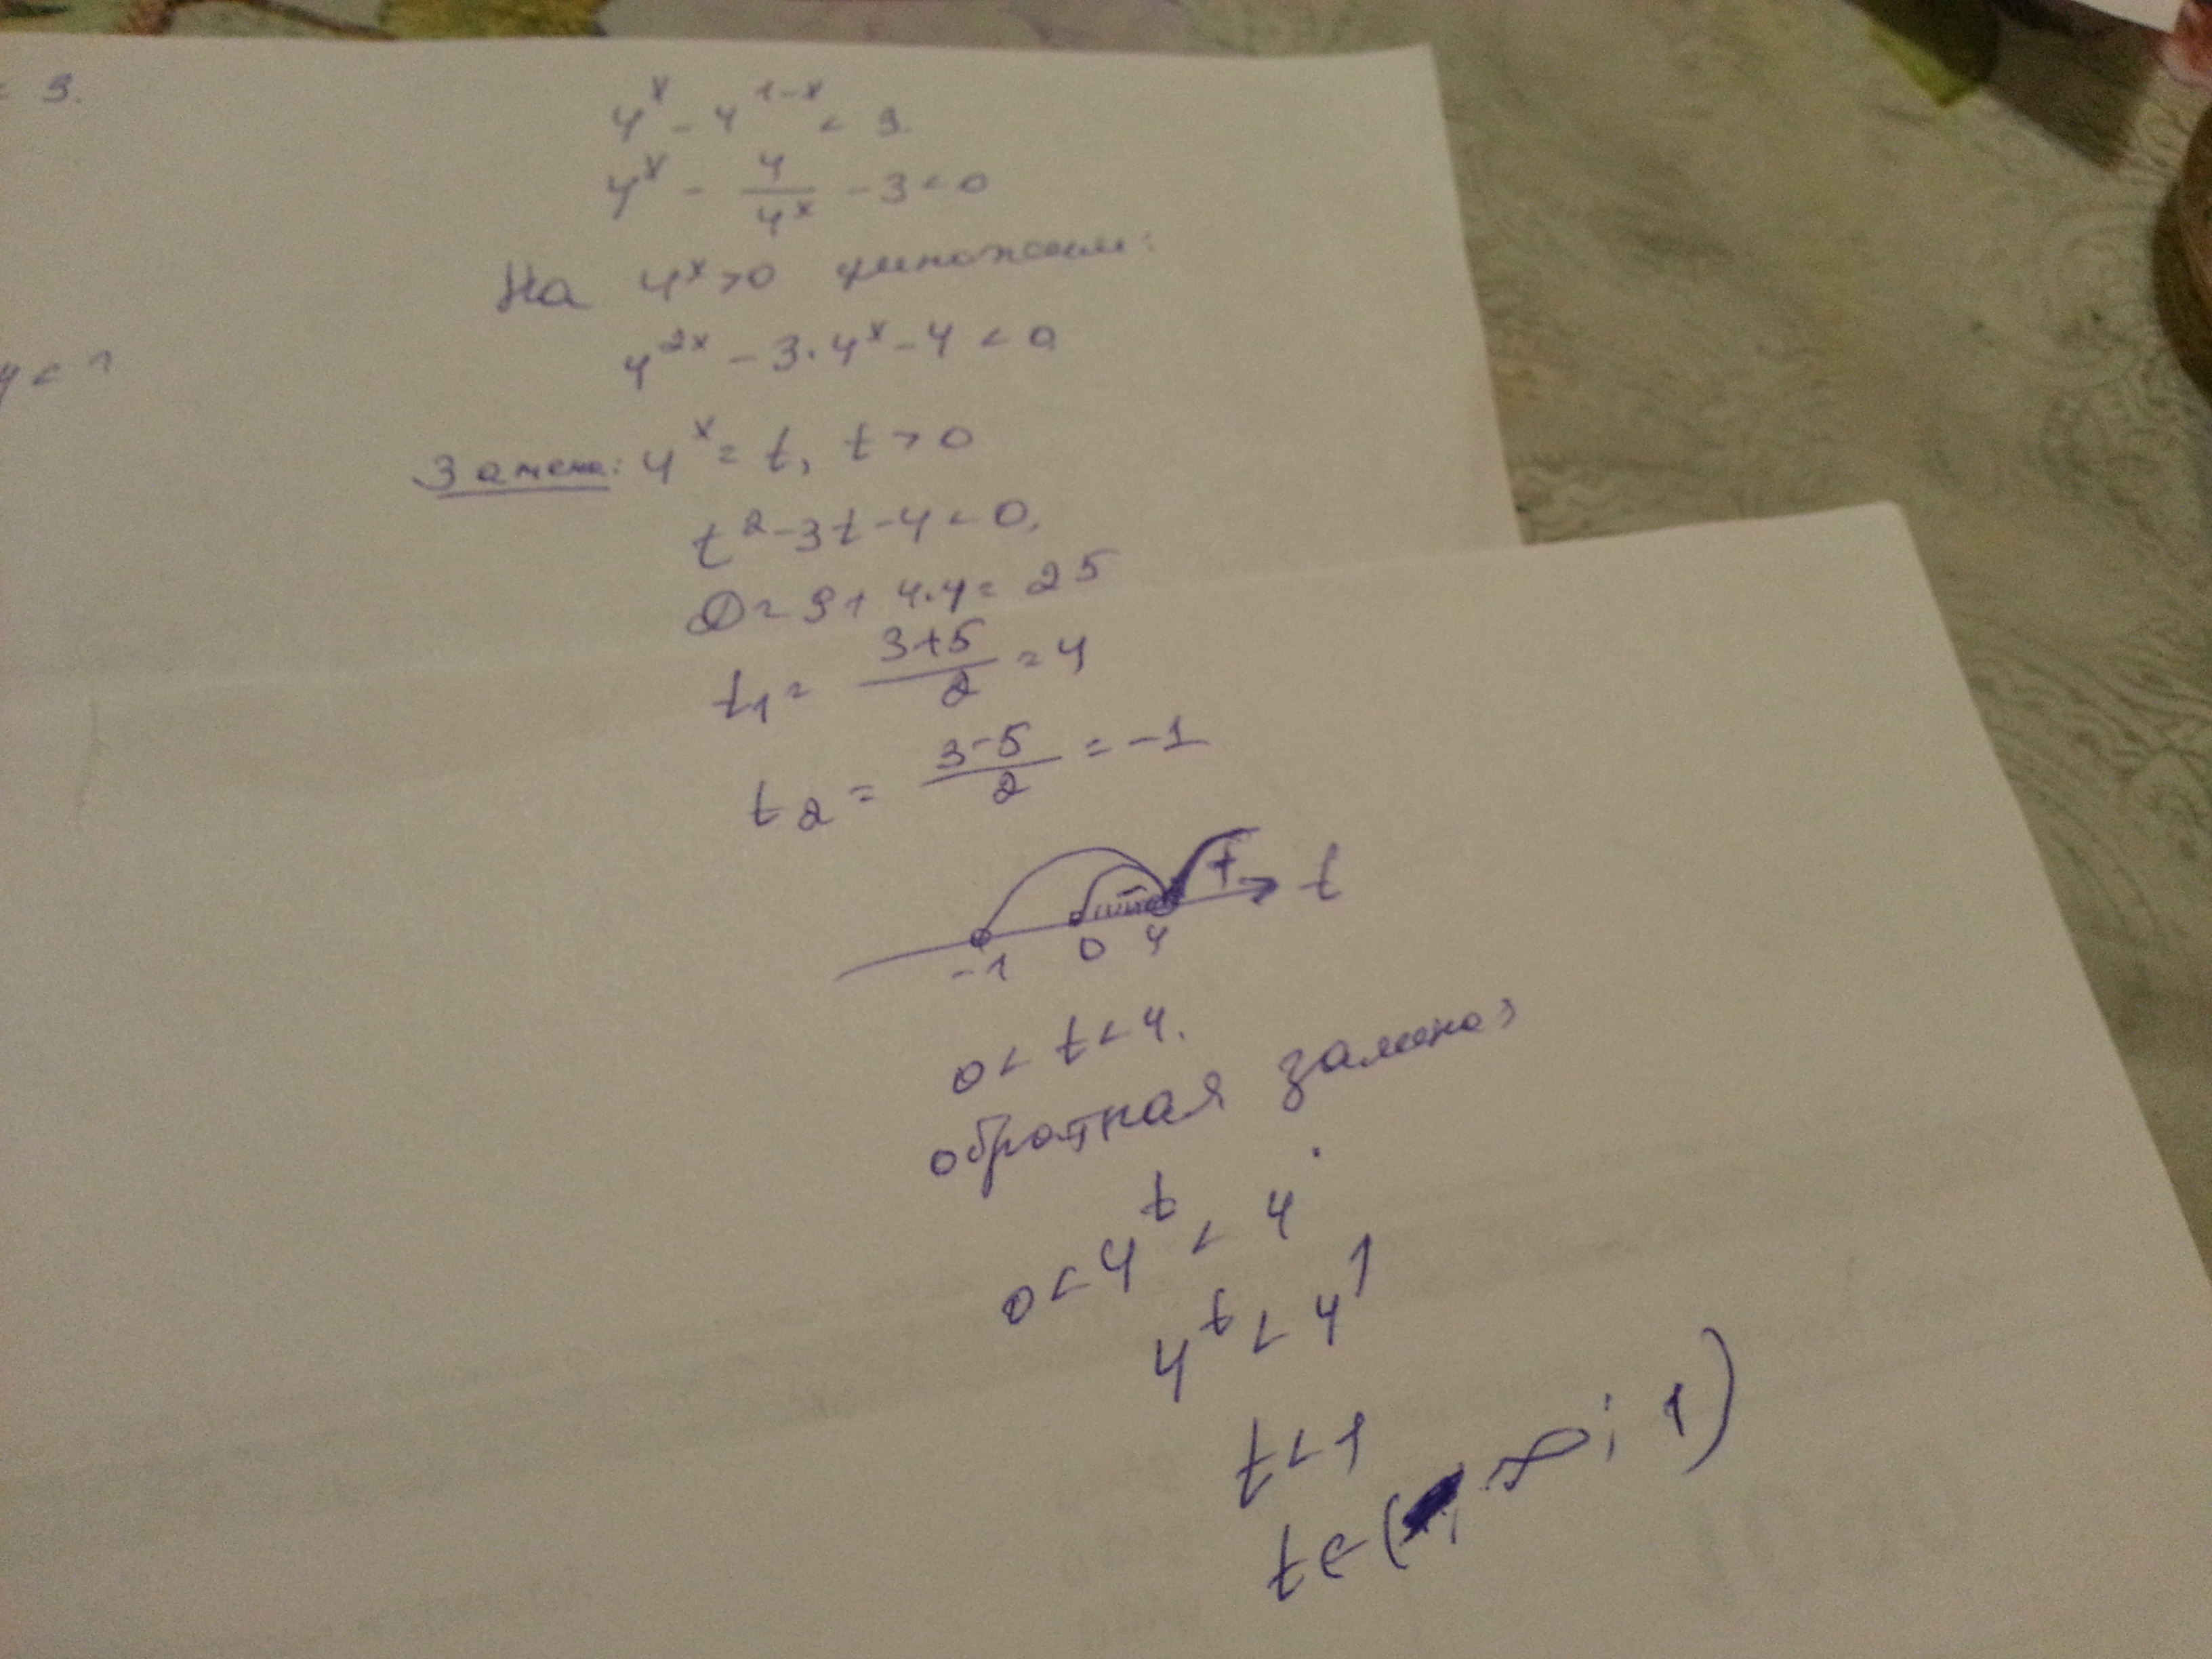 = 3.
4^x - 4^{1-x} < 3.
4^x - 4/4^x - 3 < 0
На 4^x > 0 умножим:
4^{2x} - 3·4^x - 4 < 0
4 < 1
Замена: 4^x = t, t > 0
t^2 - 3t - 4 < 0.
D = 9 + 4·4 = 25
t_1 = (3+5)/2 = 4
t_2 = (3-5)/2 = -1
- + t
-1 0 4
0 < t < 4.
обратная замена:
0 < 4^t < 4
4^t < 4^1
t < 1
t ∈ (-∞; 1)